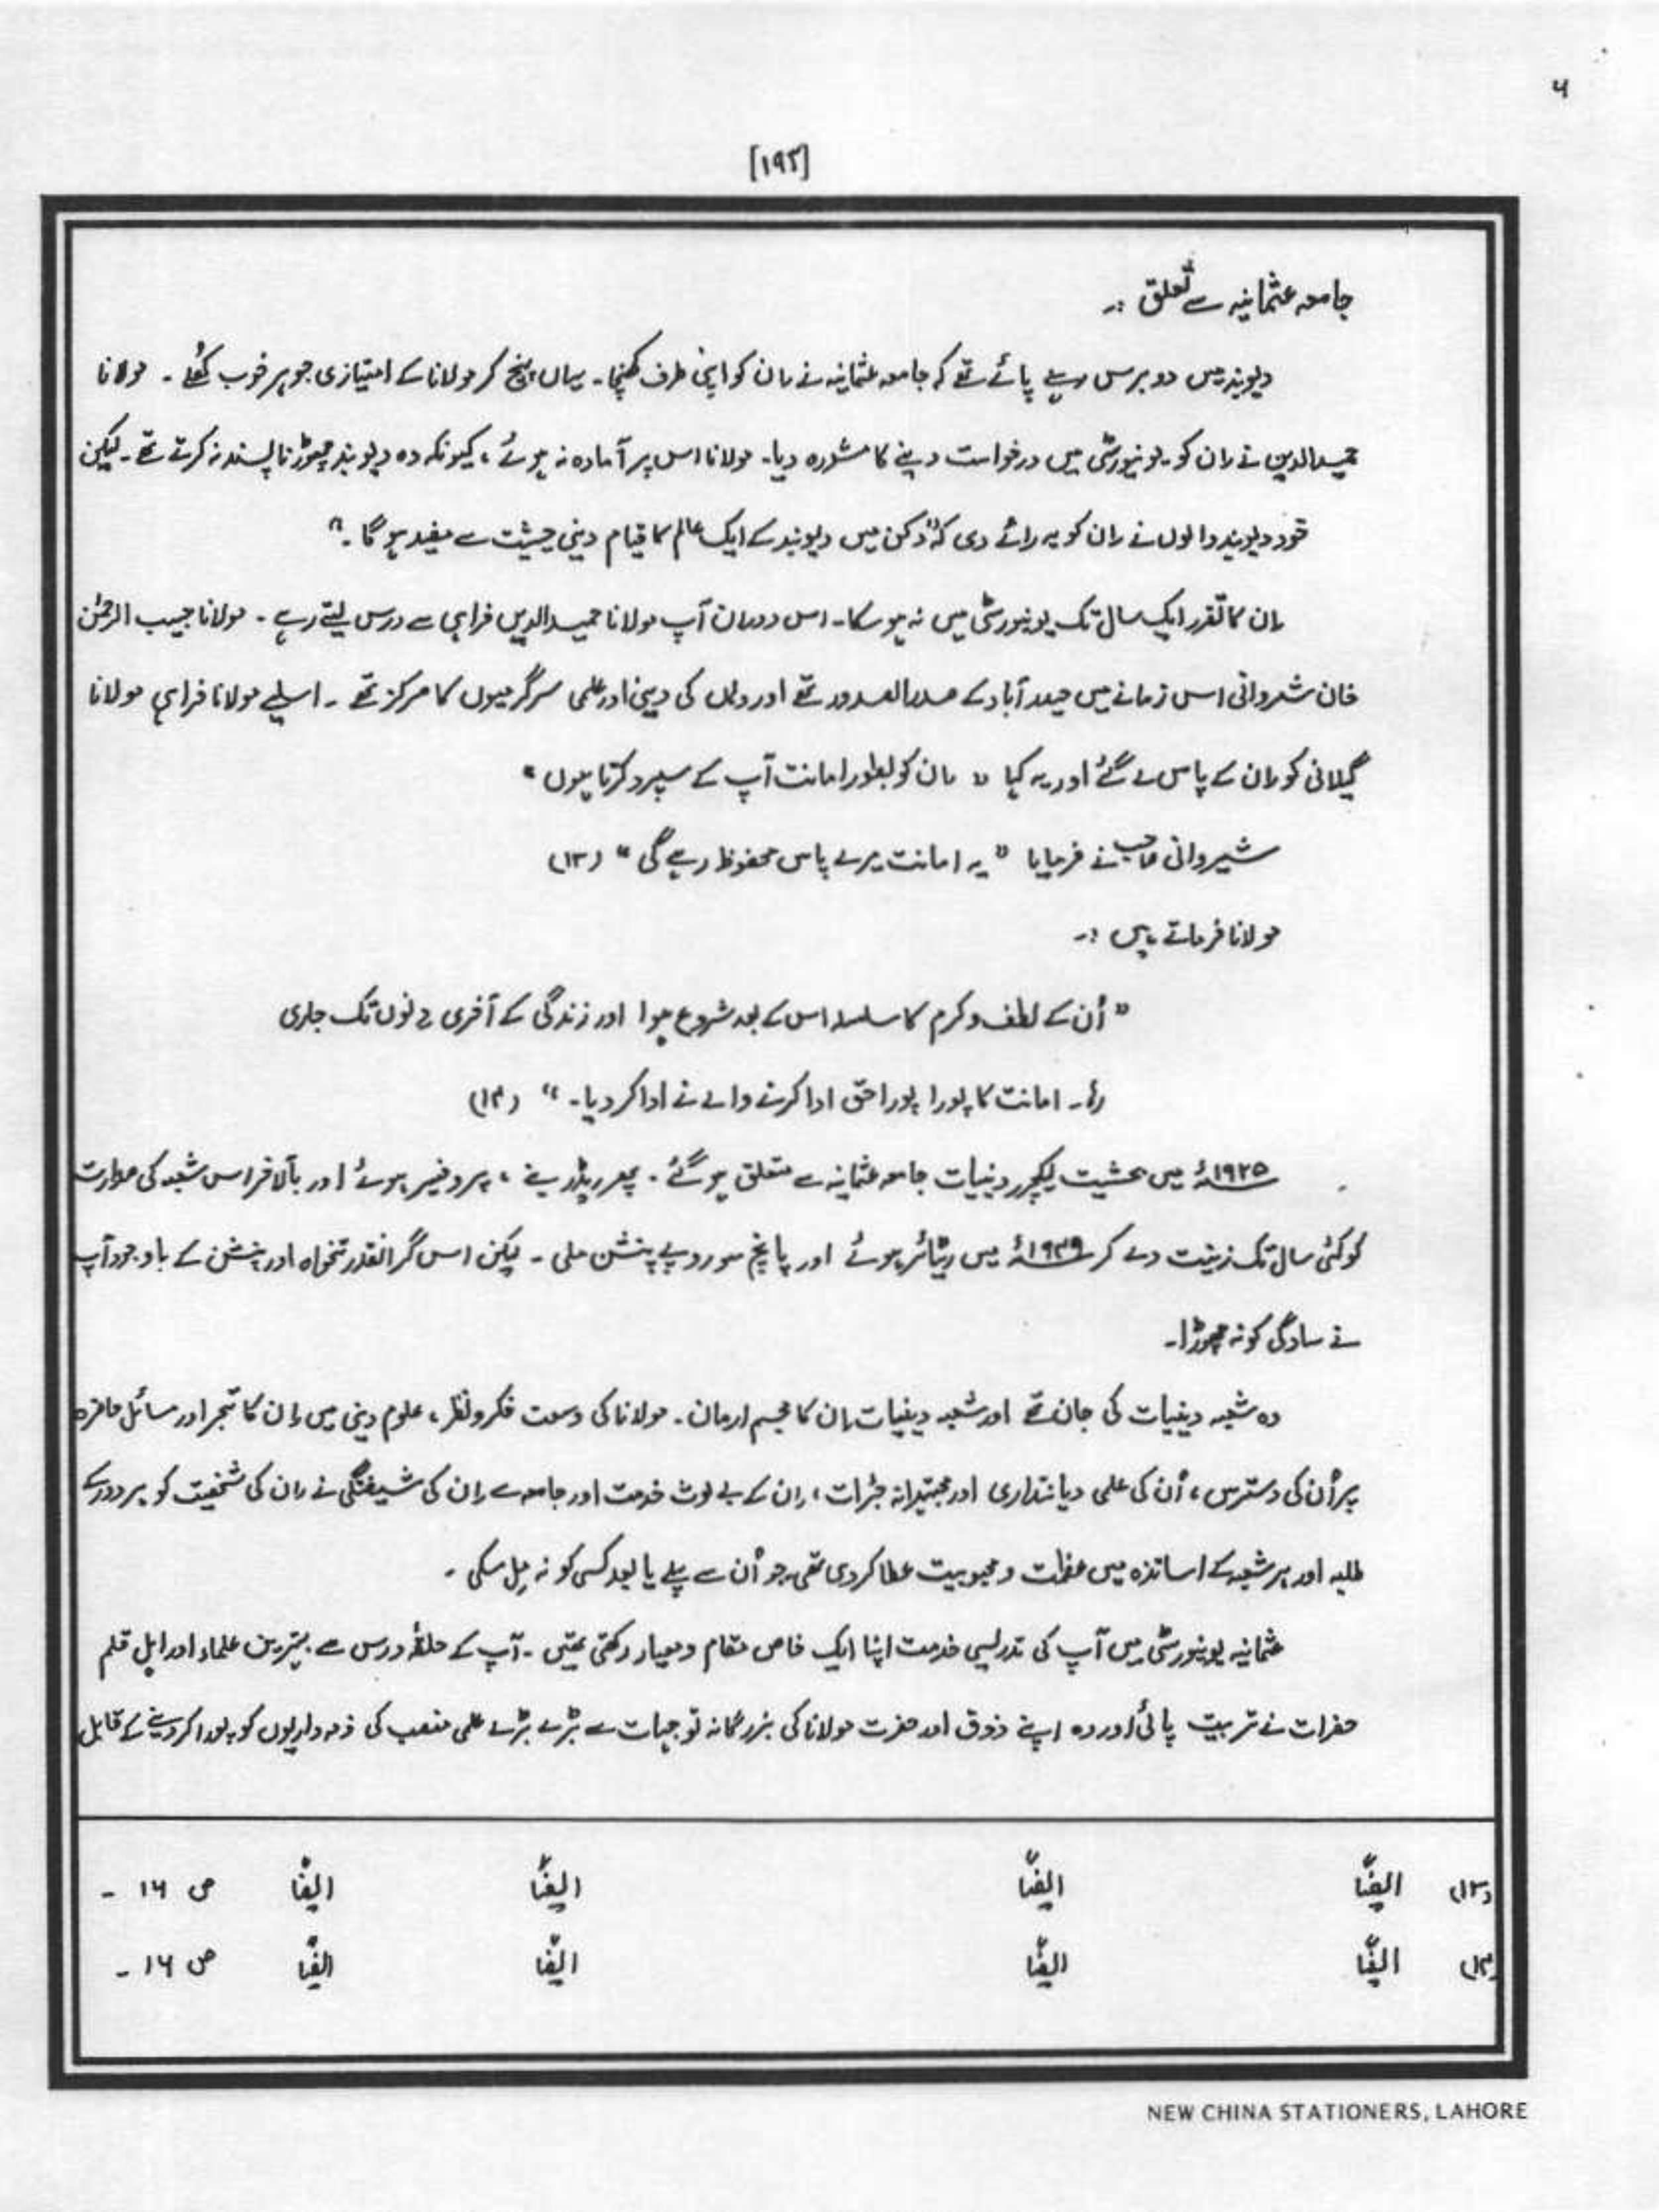 ۶
[۱۹۲]
جامعہ عثمانیہ سے تعلق :۔
دیوبند میں دو برس رہنے پائے تھے کہ جامعہ عثمانیہ نے اِن کو اپنی طرف کھینچا۔ یہاں پہنچ کر مولانا کے امتیازی جوہر خوب کُھلے ۔ مولانا
حمیدالدین نے اِن کو یونیورسٹی میں درخواست دینے کا مشورہ دیا۔ مولانا اس پر آمادہ نہ ہوئے ، کیونکہ وہ دیوبند چھوڑنا پسند نہ کرتے تھے ۔ لیکن
خود دیوبند والوں نے اِن کو یہ رائے دی کہ "دکن میں دیوبند کے ایک عالم کا قیام دینی حیثیت سے مفید ہو گا ۔"
اِن کا تقرر ایک سال تک یونیورسٹی میں نہ ہو سکا۔ اس دوران آپ مولانا حمیدالدین فراہی سے درس لیتے رہے ۔ مولانا حبیب الرحمٰن
خان شروانی اس زمانے میں حیدر آباد کے صدرالصدور تھے اور وہاں کی دینی اور علمی سرگرمیوں کا مرکز تھے ۔ اسلیے مولانا فراہی مولانا
گیلانی کو اِن کے پاس لے گئے اور یہ کہا " اِن کو بطور امانت آپ کے سپرد کرتا ہوں "
شیروانی صاحب نے فرمایا " یہ امانت میرے پاس محفوظ رہے گی " (۱۳)
مولانا فرماتے ہیں :۔
" اُن کے لطف و کرم کا سلسلہ اس کے بعد شروع ہوا اور زندگی کے آخری دنوں تک جاری
رہا ۔ امانت کا پورا پورا حق ادا کرنے والے نے ادا کر دیا۔ " (۱۴)
۱۹۲۵ء میں بحیثیت لیکچرر دینیات جامعہ عثمانیہ سے متعلق ہو گئے ۔ پھر ریڈر بنے ، پروفیسر ہوئے اور بالآخر اس شعبہ کی صدارت
کو کئی سال تک زینت دے کر ۱۹۴۹ء میں ریٹائر ہوئے اور پانچ سو روپے پنشن ملی ۔ لیکن اس گرانقدر تنخواہ اور پنشن کے باوجود آپ
نے سادگی کو نہ چھوڑا۔
وہ شعبہ دینیات کی جان تھے اور شعبہ دینیات اِن کا مجسم ارمان ۔ مولانا کی وسعت فکر و نظر ، علوم دینی میں اِن کا تبحر اور مسائل حاضرہ
پر اُن کی دسترس ، اُن کی علمی دیانتداری اور مجتہدانہ جُرات ، اِن کے بے لوث خدمت اور جامعہ سے اِن کی شیفتگی نے اِن کی شخصیت کو ہر دور کے
طلبہ اور ہر شعبہ کے اساتذہ میں عظمت و محبوبیت عطا کر دی تھی، جو اُن سے پہلے یا بعد کسی کو نہ مِل سکی ۔
عثمانیہ یونیورسٹی میں آپ کی تدریسی خدمت اپنا ایک خاص مقام و معیار رکھتی تھیں ۔ آپ کے حلقۂ درس سے بہترین علماء اور اہل قلم
حضرات نے تربیت پائی اور وہ اپنے ذوق اور حضرت مولانا کی بزرگانہ توجہات سے بڑے بڑے علمی منصب کی ذمہ داریوں کو پورا کر دینے کے قابل
(۱۳) ایضاً ایضاً ایضاً ایضاً ص ۱۶ ۔
(۱۴) ایضاً ایضاً ایضاً ایضاً ص ۱۶ ۔
NEW CHINA STATIONERS, LAHORE